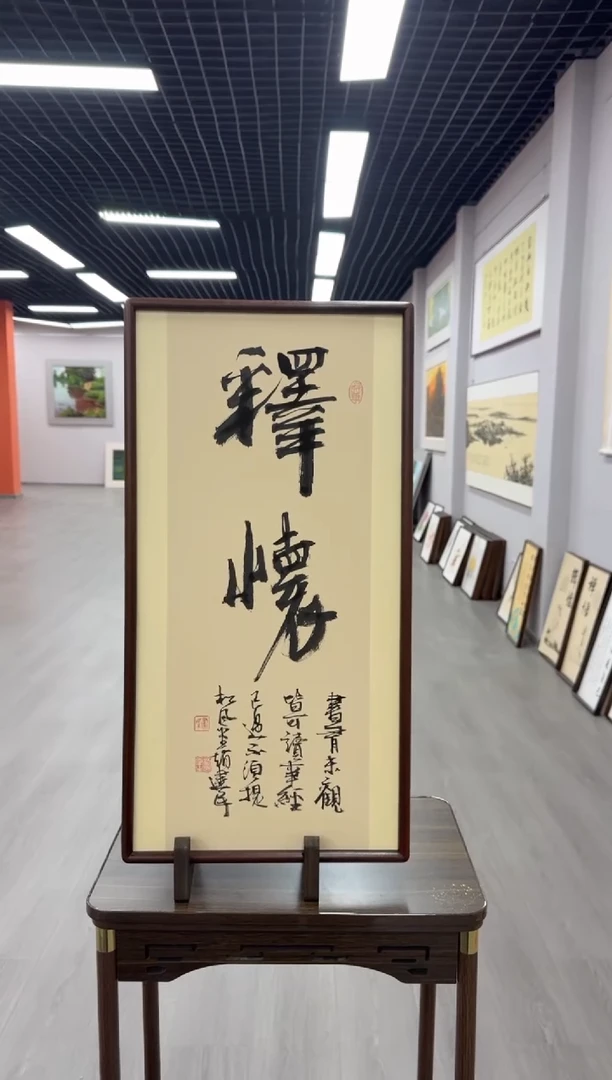 釋懷
書有未觀
皆可讀事經
已過不須提
松風堂趙建民